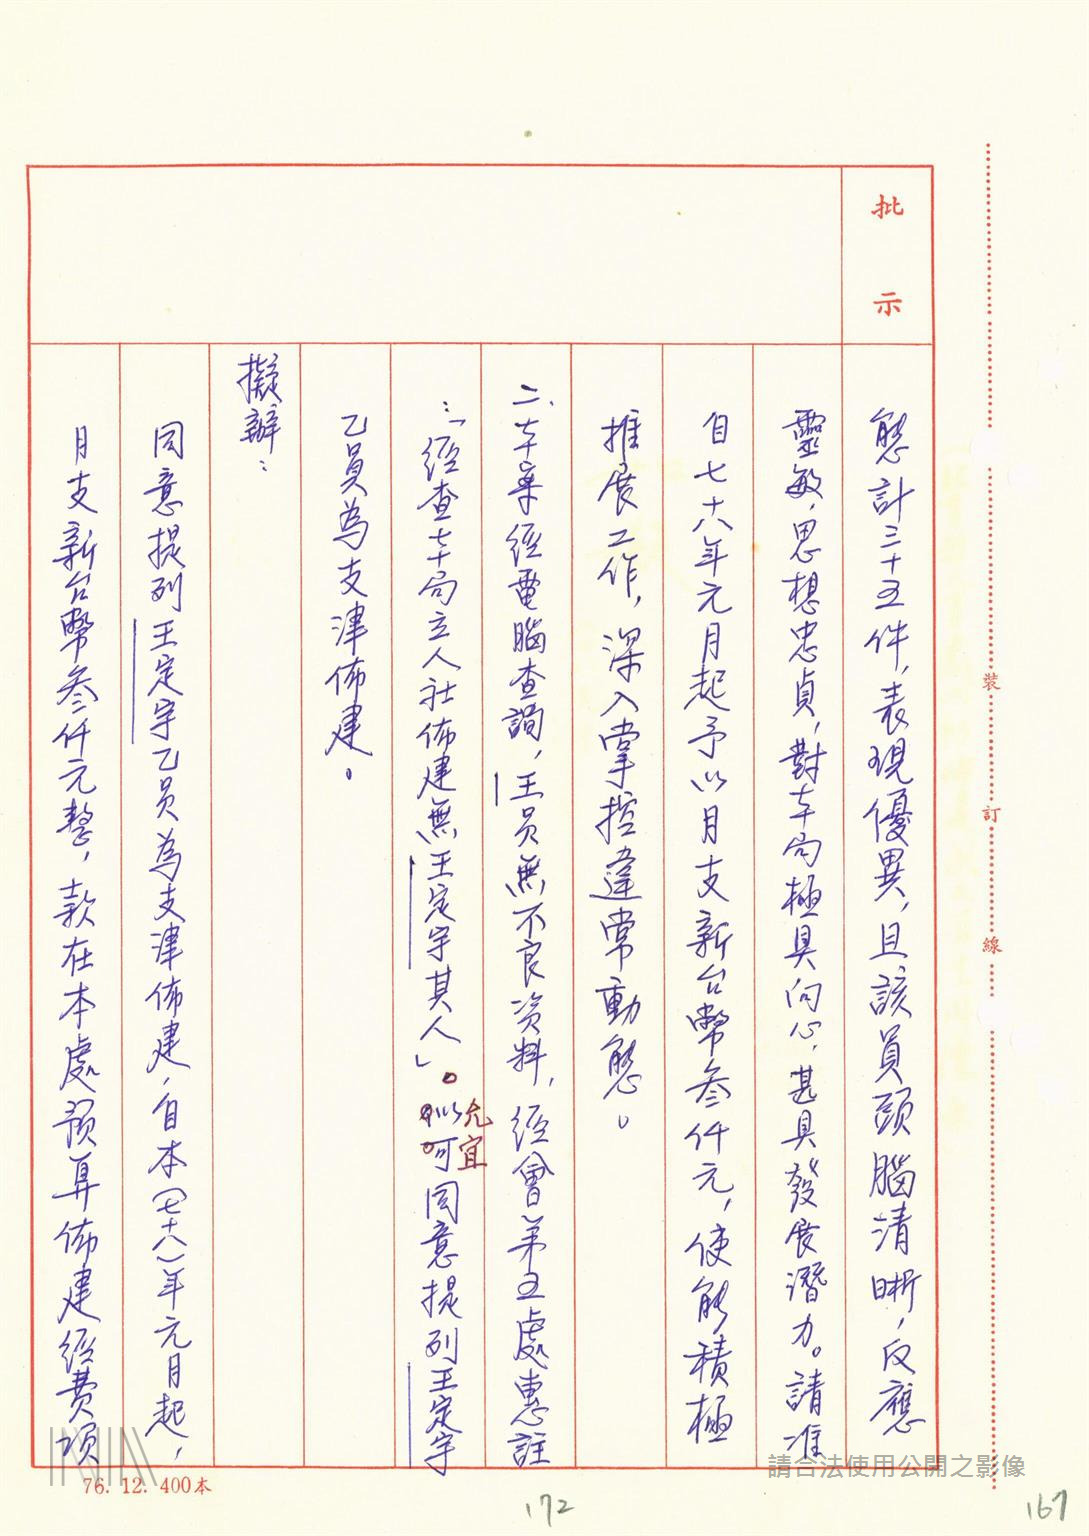 批示
態計三十五件，表現優異，且該員頭腦清晰，反應
靈敏，思想忠貞，對本局極具向心，甚具發展潛力。請准
自七十八年元月起予以月支新台幣叁仟元，使能積極
推展工作，深入掌控違常動態。
二、本案經電腦查詢，王員無不良資料，經會第五處惠註
：「經查本局立人社佈建無王定宇其人」。擬以可同意提列王定宇
尤宜
乙員為支津佈建。
擬辦：
同意提列王定宇乙員為支津佈建，自本（七十八）年元月起，
月支新台幣叁仟元整，款在本處預算佈建經費項
裝訂線
76. 12. 400本
請合法使用公開之影像
172
167